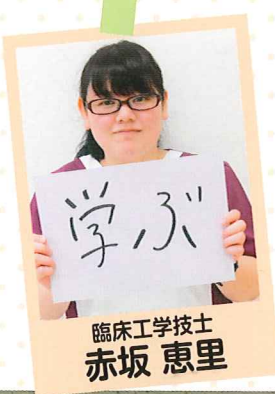 学ぶ
臨床工学技士
赤坂 恵里